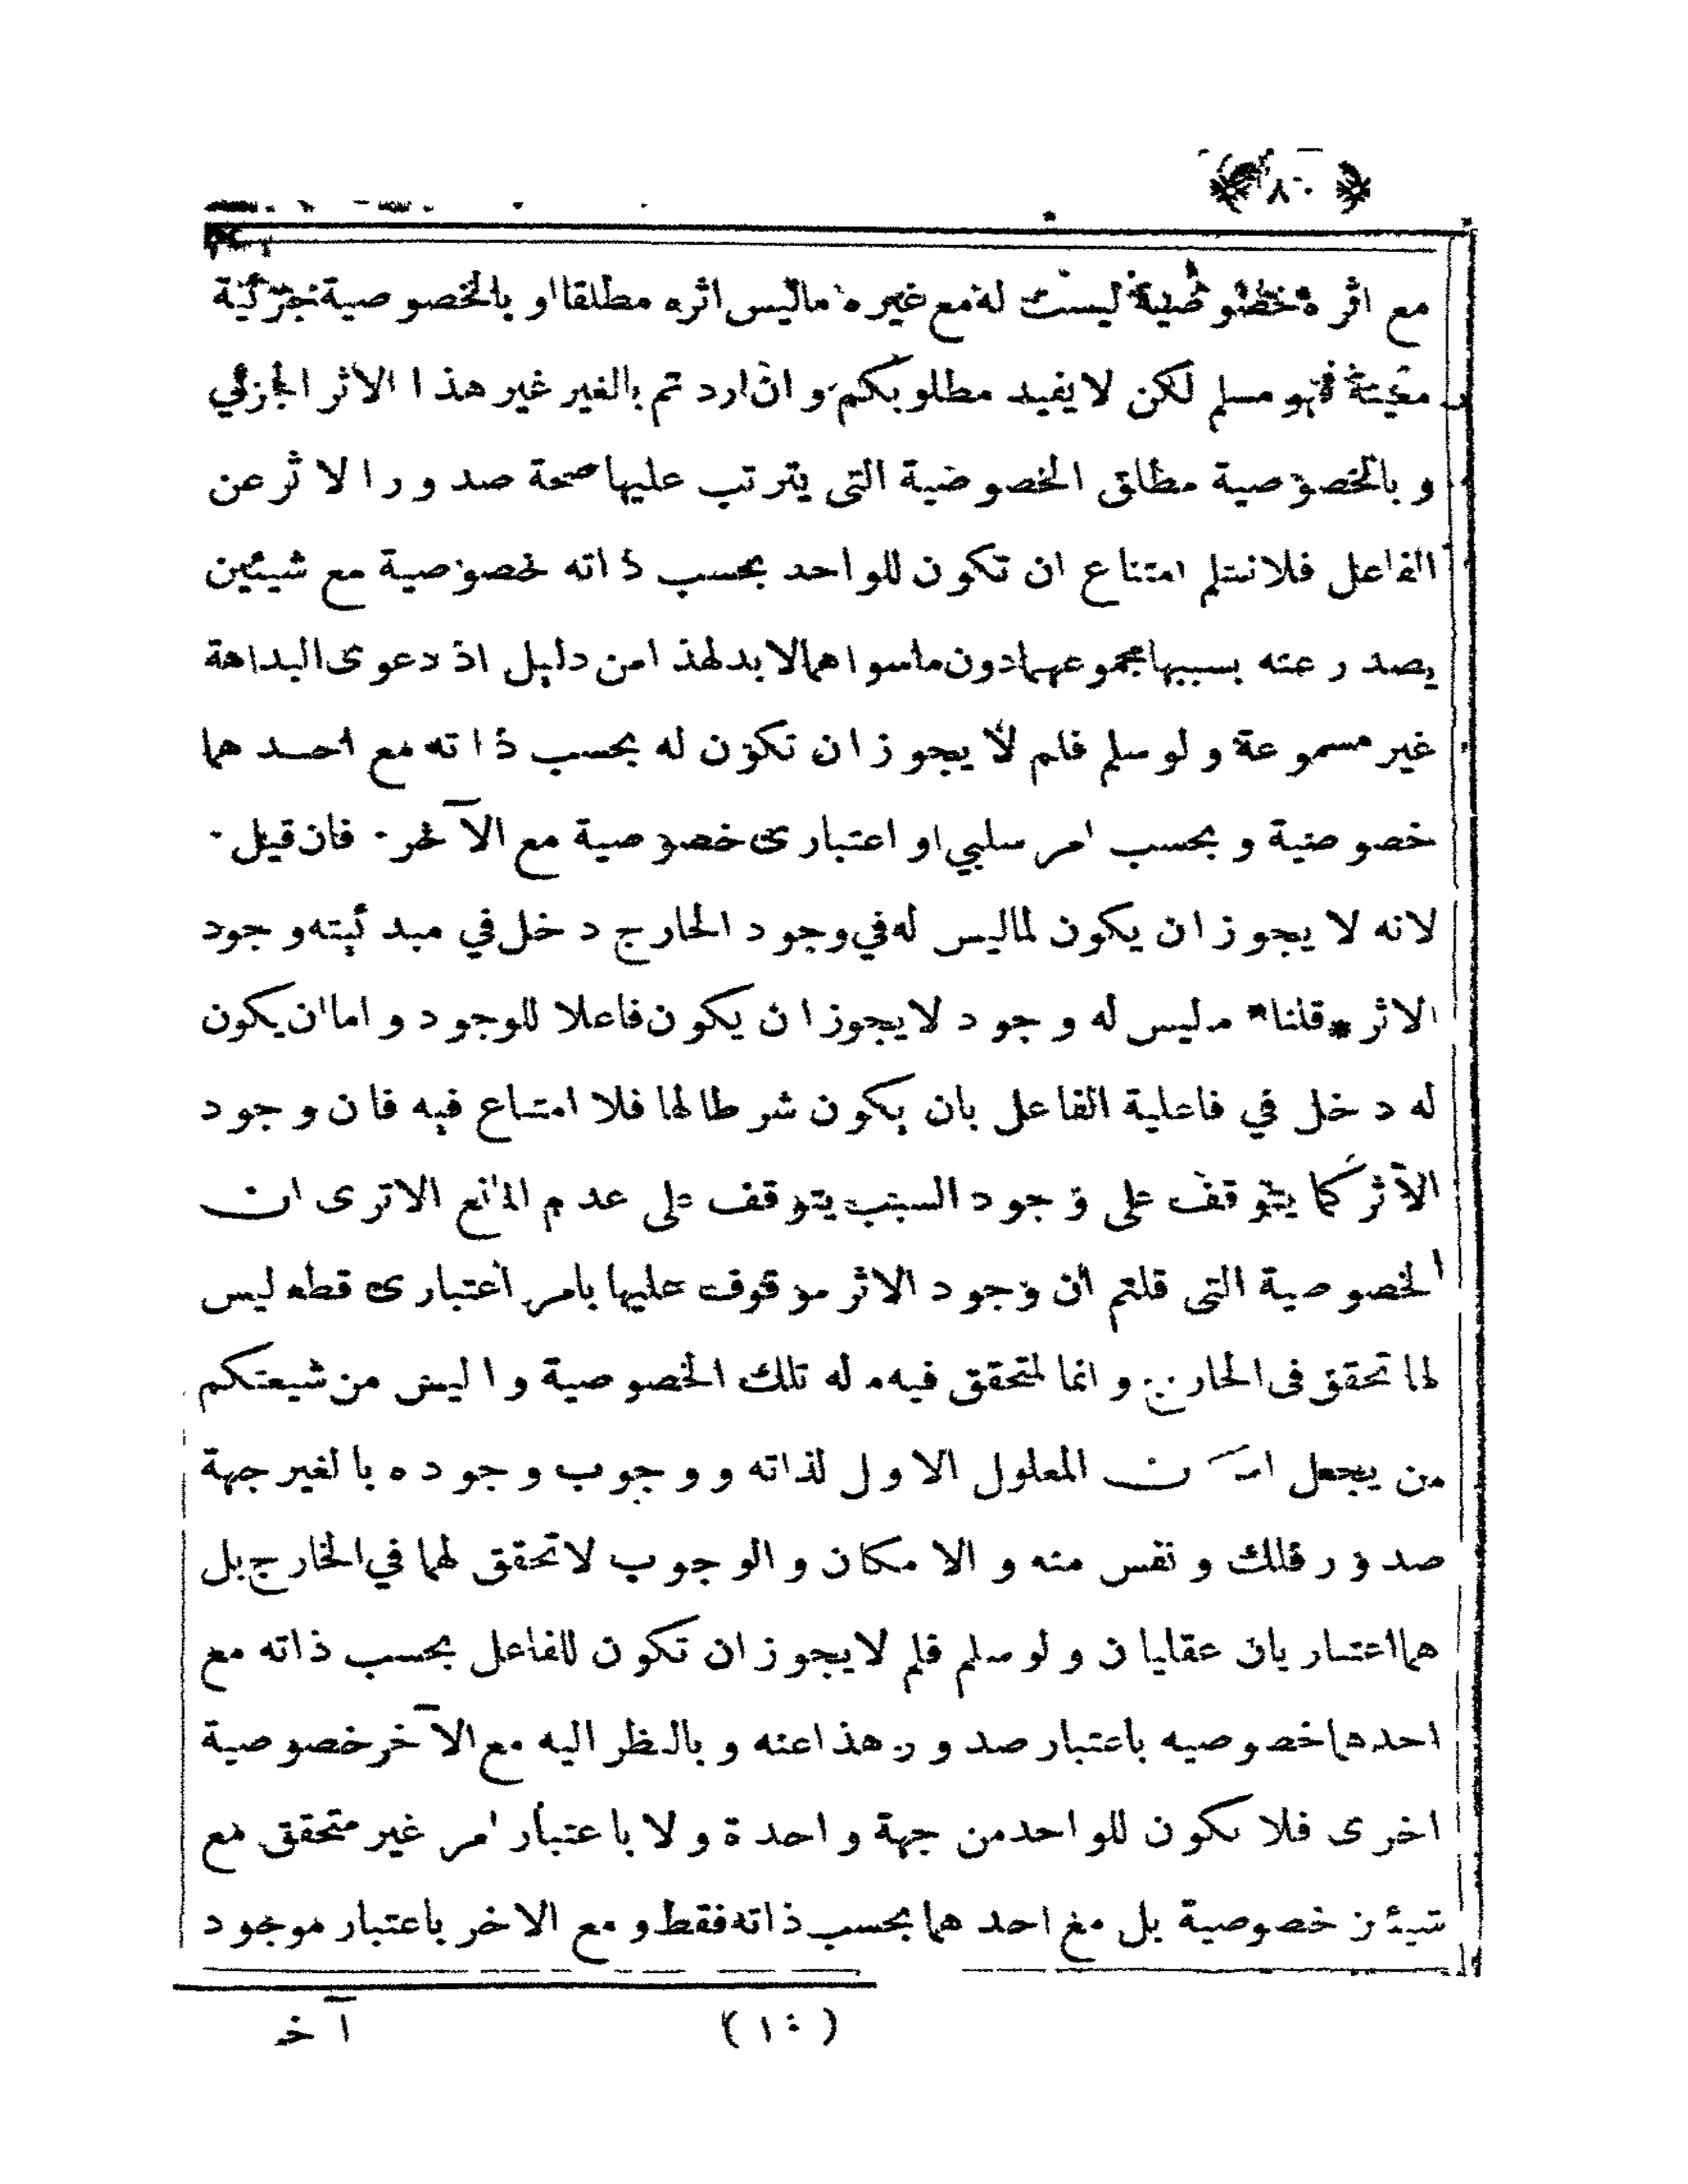 ﴿ ٨٠ ﴾
مع اثره خصوصية ليست له مع غيره ماليس اثره مطلقا او بالخصوصية جزئية
معينة فهو مسلم لكن لا يفيد مطلوبكم و ان اردتم بالغير غير هذا الاثر الجزئي
و بالخصوصية مطلق الخصوصية التى يترتب عليها صحة صدور الاثر عن
الفاعل فلا نسلم امتناع ان تكون للواحد بحسب ذاته خصوصية مع شيئين
يصدر عنه بسببها مجموعهما دون ما سواهما لا بد لهذا من دليل اذ دعوى البداهة
غير مسموعة و لو سلم فلم لا يجوز ان تكون له بحسب ذاته مع احدهما
خصوصية و بحسب امر سلبي او اعتبارى خصوصية مع الآخر · فان قيل ·
لانه لا يجوز ان يكون لما ليس له في وجود الخارج دخل في مبدئيته وجود
الاثر * قلنا * ما ليس له وجود لا يجوز ان يكون فاعلا للوجود و اما ان يكون
له دخل في فاعلية الفاعل بان يكون شرطا لها فلا امتناع فيه فان وجود
الاثر كما يتوقف على وجود السبب يتوقف على عدم المانع الا ترى ان
الخصوصية التى قلتم ان وجود الاثر موقوف عليها بامر اعتبارى قطعا ليس
لها تحقق فى الخارج و انما المتحقق فيه ما له تلك الخصوصية و اليس من شيعتكم
من يجعل امكان المعلول الاول لذاته و وجوب وجوده بالغير جهة
صدور فلك و نفس منه و الامكان و الوجوب لا تحقق لهما في الخارج بل
هما اعتباريان عقليان و لو سلم فلم لا يجوز ان تكون للفاعل بحسب ذاته مع
احدهما خصوصيه باعتبار صدور هذا عنه و بالنظر اليه مع الآخر خصوصية
اخرى فلا تكون للواحد من جهة واحدة و لا باعتبار امر غير متحقق مع
شيئين خصوصية بل مع احدهما بحسب ذاته فقط و مع الاخر باعتبار موجود
(١٠)
آخر